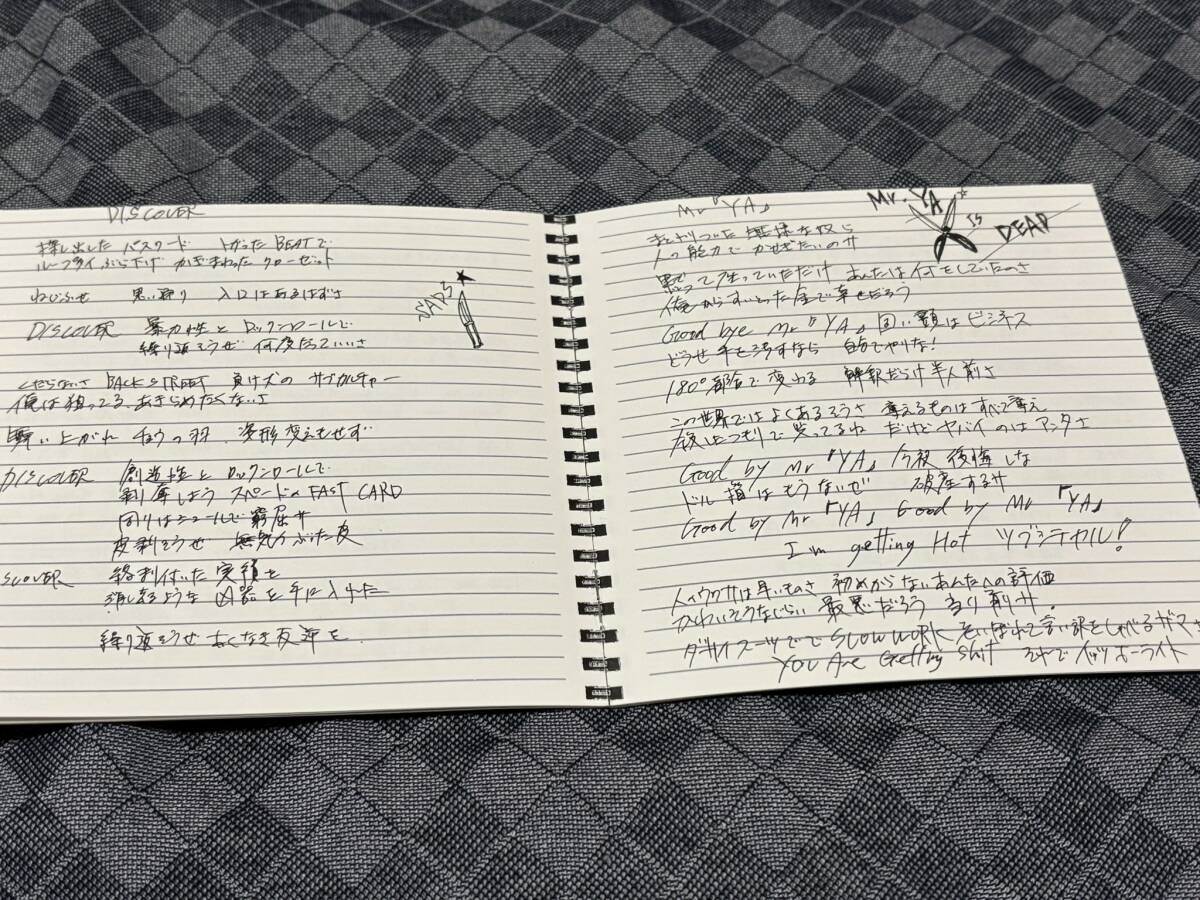 DISCOVER
探し出した パスワード トガった BEATで
ループタイ ぶら下げ かぎまわった クローゼット
ねじふせ 思い通り 入口はあるはずさ
SADS
DISCOVER 暴力性と ロックンロールで
繰り返そうぜ 何度だっていいさ
くだらないさ BACK STREET 負け犬の サブカルチャー
俺は狙ってる あきらめたくないさ
舞い上がれ チョウの羽 姿形変えもせず
DISCOVER 創造性と ロックンロールで
剥奪しよう スペードの FAST CARD
回りはニュールで 窮屈サ
皮剥ごうぜ 無知のぶた皮
SCOVER 終止付いた 実績を
消し去るような 凶器を手に入れた
繰り返そうぜ 古くなき反逆を
Mr『YA』
Mr. YA IS DEAD
まとわりついた 奴ら
人の能力で かせぎたいのサ
黙って座っていただけ あんたは何をしていたのさ
俺からすいとった金で幸せだろう
Good bye Mr『YA』 固い頭はビジネス
どうせ手を汚すなら 自分でやりな!
180°都合で変わる 解釈だらけ半人前さ
この世界ではよくあるそうさ 奪えるものはすべて奪え
つもりで笑ってるね だけどヤバイのはアンタさ
Good by Mr『YA』 今夜 後悔しな
ドル箱はもうないぜ 破産するサ
Good by Mr『YA』 Good by Mr『YA』
I'm getting Hot ツブシテヤル!
人のウワサは早いものさ 初めからないあんたへの評価
かわいそうなぐらい 最悪だろう 当り前サ!
ダサイスーツでで SLOW WORK 老いぼれて言い訳をしゃべる
YOU Are Getting Shit それで イッツオーライト